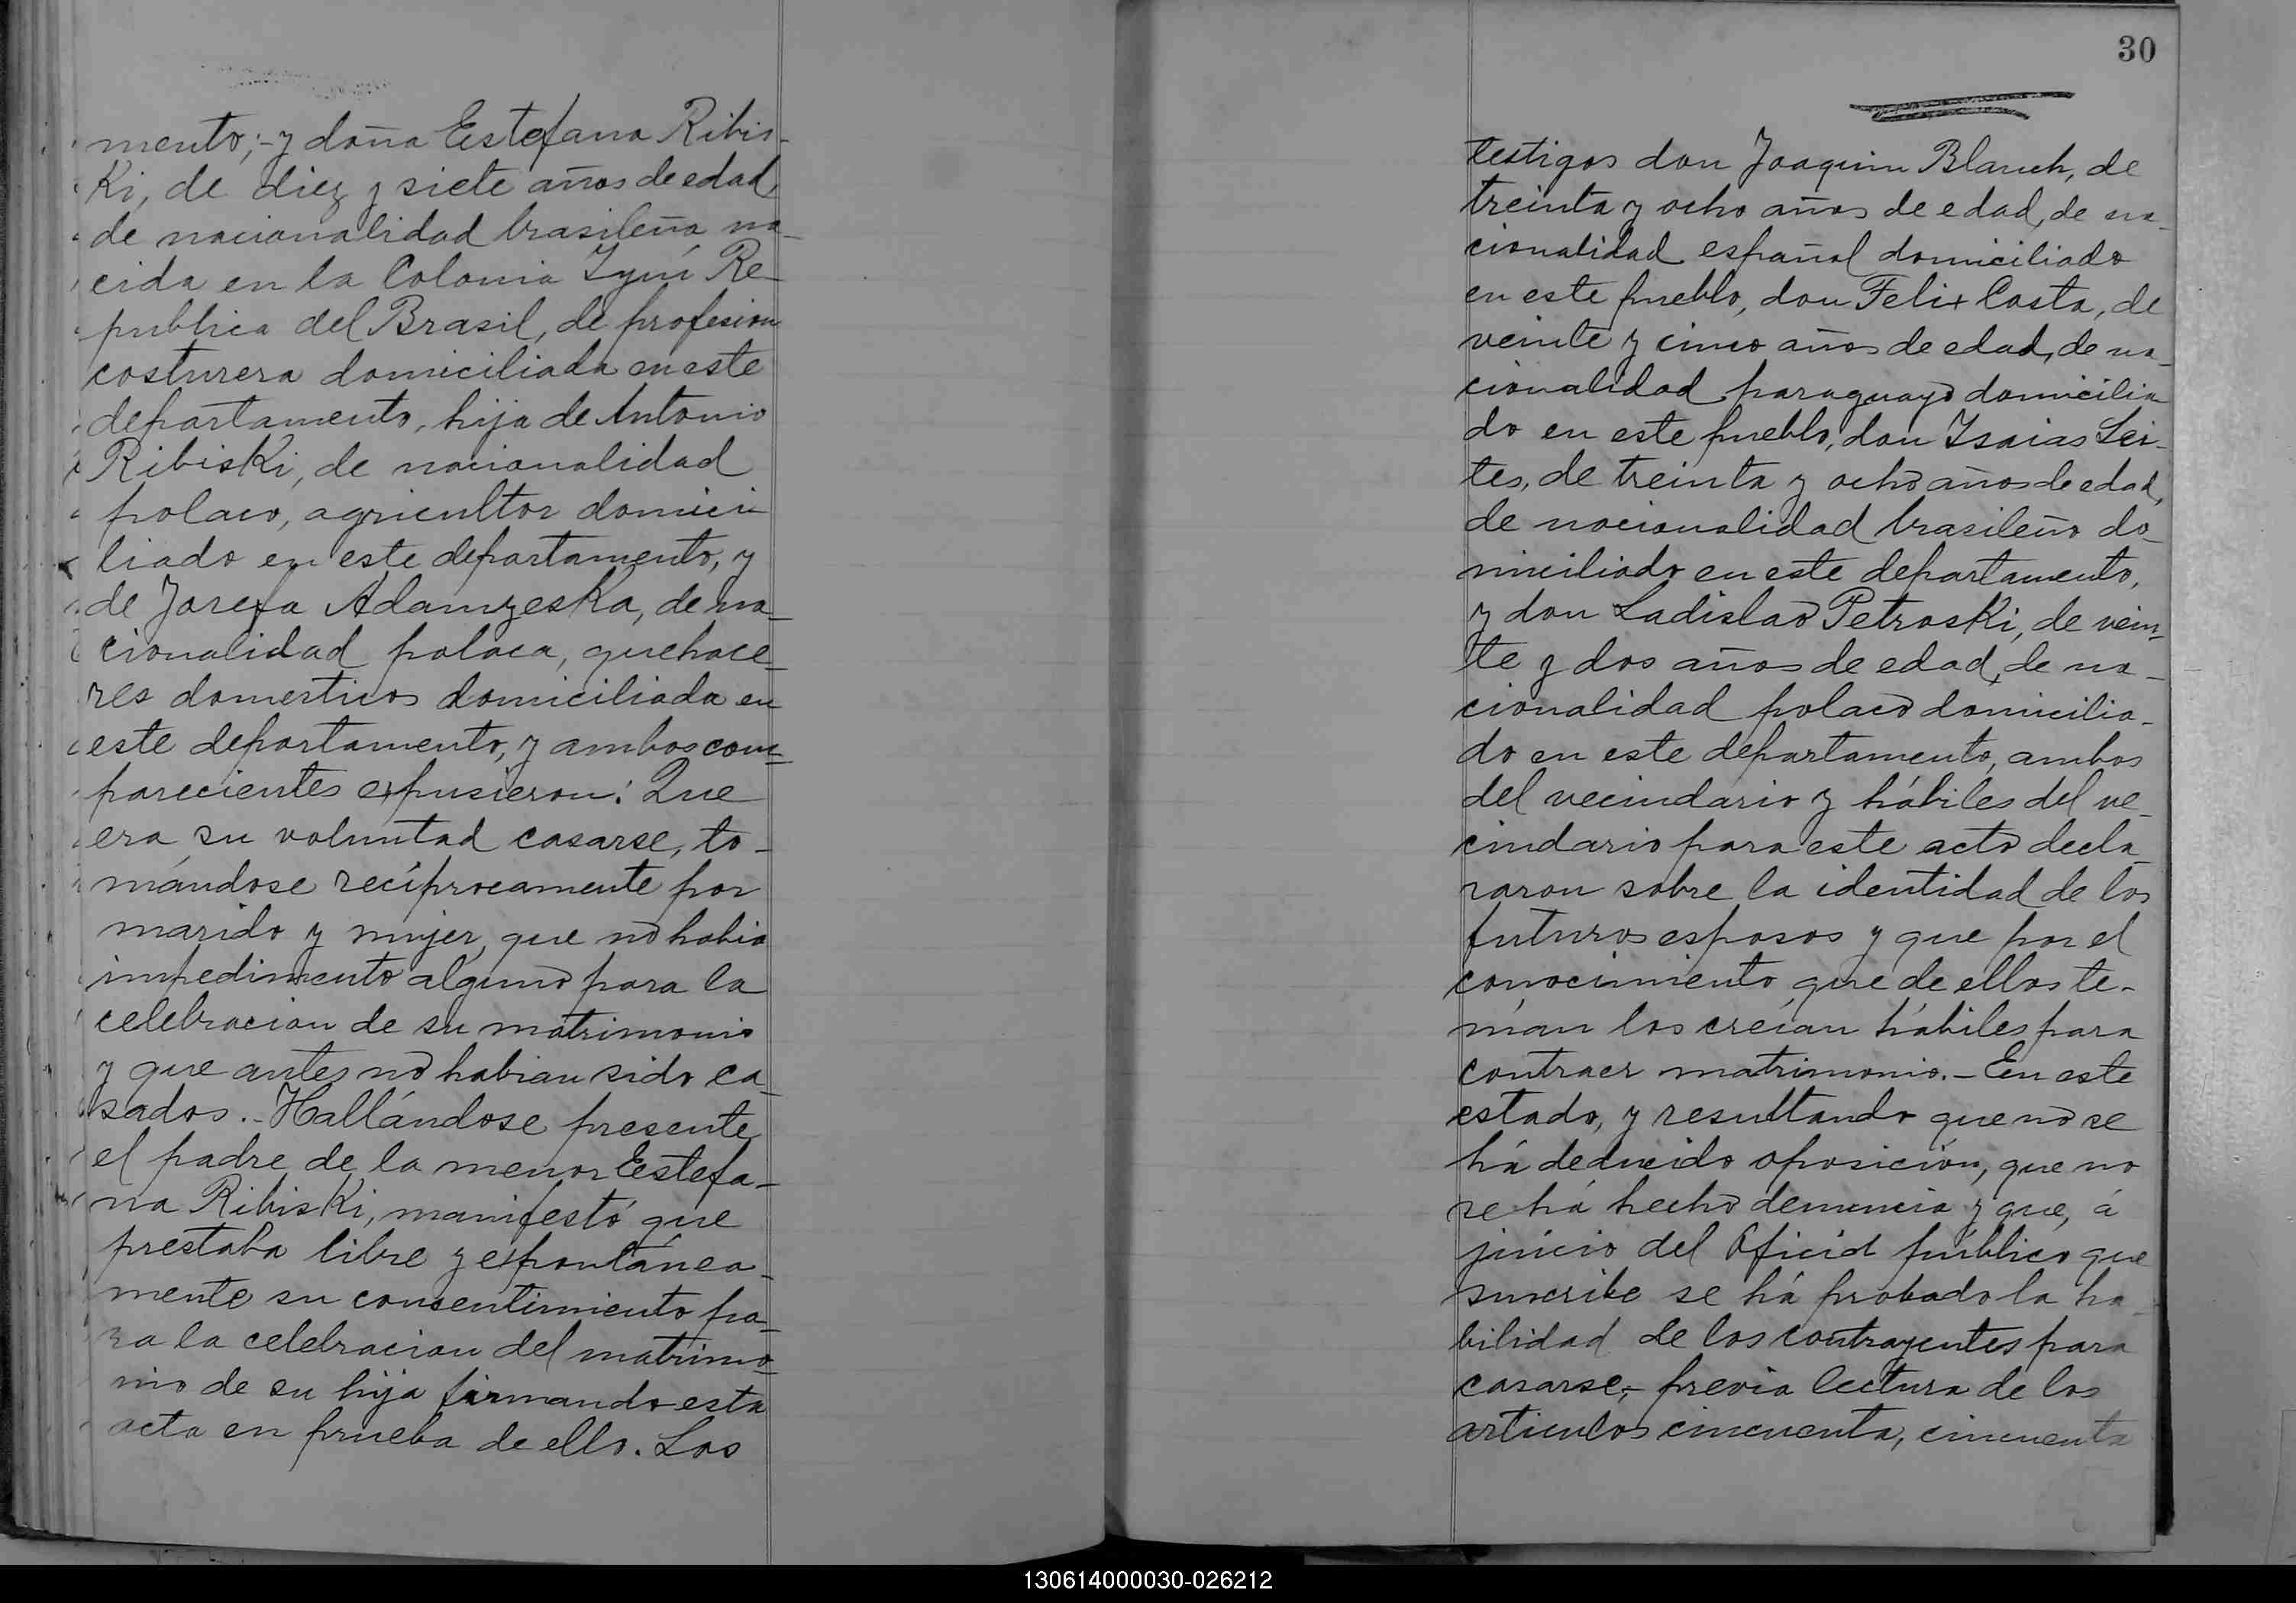 mento;- y doña Estefana Ribis-
Ki, de diez y siete años de edad
de nacionalidad brasileña na-
cida en la Colonia Yyuí Re-
publica del Brasil, de profesion
costurera domiciliada en este
departamento, hija de Antonio
RibisKi, de nacionalidad
polaco, agricultor domici
liado en este departamento, y
de Josefa AdamzesKa, de na-
cionalidad polaca, quehace-
res domesticos domiciliada en
este departamento, y ambos com-
parecientes expusieron: Que
era su voluntad casarse, to-
mándose recíprocamente por
marido y mujer, que no habia
impedimento alguno para la
celebracion de su matrimonio
y que antes no habian sido ca-
sados.- Hallándose presente
el padre de la menor Estefa-
na RibisKi, manifestó que
prestaba libre y espontánea-
mente su consentimiento pa-
ra la celebracion del matrimo-
nio de su hija firmando esta
acta en prueba de ello. Los
30
testigos don Joaquin Blanch, de
treinta y ocho años de edad, de na-
cionalidad español domiciliado
en este pueblo, don Felix Costa, de
veinte y cinco años de edad, de na-
cionalidad paraguayo domicilia
do en este pueblo, don Isaias Lei-
tes, de treinta y ocho años de edad,
de nacionalidad brasileño do-
miciliado en este departamento,
y don Ladislao PetrosKi, de vein-
te y dos años de edad, de na-
cionalidad polaco domicilia-
do en este departamento, ambos
del vecindario y hábiles del ve-
cindario para este acto decla-
raron sobre la identidad de los
futuros esposos y que por el
conocimiento que de ellos te-
nían los creían hábiles para
contraer matrimonio.- En este
estado, y resultando que no se
há deducido oposición, que no
se há hecho denuncia y que, á
juicio del Oficial público que
suscribe se há probado la ha-
bilidad de los contrayentes para
casarse,- previa lectura de los
articulos cincuenta, cincuenta
130614000030-026212